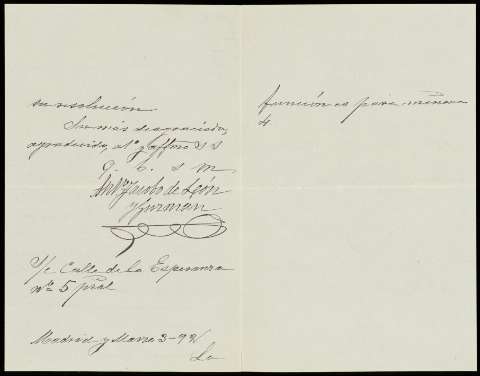 su resolución.
Su más desgraciado,
agradecido, at.º y affmo S S
Q. B. S M
Ant.º Jacobo de León
y Guzmán
S/c Calle de la Esperanza
nº 5 pral
Madrid y Marzo 3-99/
La
función es para mañana
4